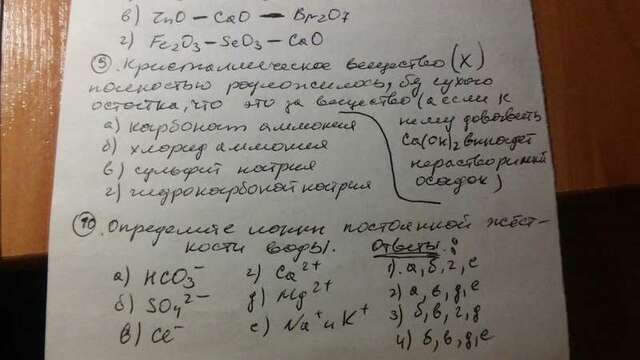 в) ZnO — CaO — Br2O7
г) Fe2O3 — SeO3 — CaO
9. Кристаллическое вещество (X)
полностью разложилось, без сухого
остатка, что это за вещество (а если к
нему добавить
Ca(OH)2 выпадет
нерастворимый
осадок)
а) карбонат аммония
б) хлорид аммония
в) сульфит натрия
г) гидрокарбонат натрия
10. Определите ионы постоянной жёст-
кости воды.
а) HCO3-
б) SO4 2-
в) Cl-
г) Ca2+
д) Mg2+
е) Na+ и K+
Ответы:
1). а, б, г, е
2) а, в, д, е
3) б, в, г, д
4) б, в, д, е